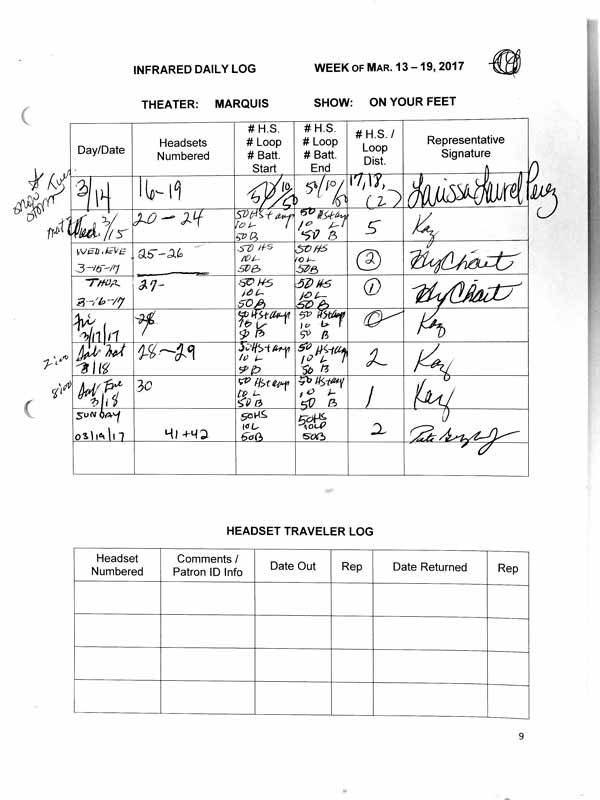 INFRARED DAILY LOG WEEK OF MAR. 13 – 19, 2017
THEATER: MARQUIS SHOW: ON YOUR FEET
Day/Date
Headsets
Numbered
# H.S.
# Loop
# Batt.
Start
# H.S.
# Loop
# Batt.
End
# H.S. /
Loop
Dist.
Representative
Signature
Tues
snow
storm
3/14
16-19
50/10/50
50/10/50
17,18,
(2)
Larissa Laurel Perez
mat Wed 3/15
20 – 24
50 HS + amp
10 L
50 B
50 HS + amp
10 L
50 B
5
Kay
WED. EVE
3-15-17
25-26
50 HS
10L
50B
50 HS
10L
50B
2
THUR
3-16-17
27-
50 HS
10L
50B
50 HS
10L
50B
1
Fri
3/17/17
28
50 HS + amp
10 L
50 B
50 HS + amp
10 L
50 B
0
Kay
2:00
Sat Mat
3/18
28 – 29
50 HS + amp
10 L
50 B
50 HS + amp
10 L
50 B
2
Kay
8:00
Sat Eve
3/18
30
50 HS + amp
10 L
50 B
50 HS + amp
10 L
50 B
1
Kay
SUNDAY
03/19/17
41 + 42
50HS
10L
50B
50HS
50B
2
HEADSET TRAVELER LOG
Headset
Numbered
Comments /
Patron ID Info
Date Out
Rep
Date Returned
Rep
9